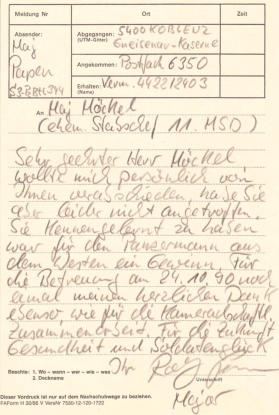 Meldung Nr Ort Zeit
Absender: Abgegangen: 5400 KOBLENZ
Maj (UTM-Gitter) Gneisenau-Kaserne
Papen Angekommen: Postfach 6350
Erhalten: Verm. 442212403
(Name)
An Maj Möckel
(ehem. Stabschef 11. MSD)
Sehr geehrter Herr Möckel
wollte mich persönlich von
Ihnen verabschieden, habe Sie
aber leider nicht angetroffen.
Sie kennengelernt zu haben
war für den Panzermann aus
dem Westen ein Gewinn. Für
die Betreuung am 24.10.90 noch
einmal meinen herzlichen Dank
ebenso wie für die kameradschaftl.
Zusammenarbeit. Für die Zukunft
Gesundheit und Soldatenglück
Ihr
Beachte: 1. Wo – wann – wer – wie – was Unterschrift
2. Deckname
Major
Dieser Vordruck ist nur auf dem Nachschubwege zu beziehen.